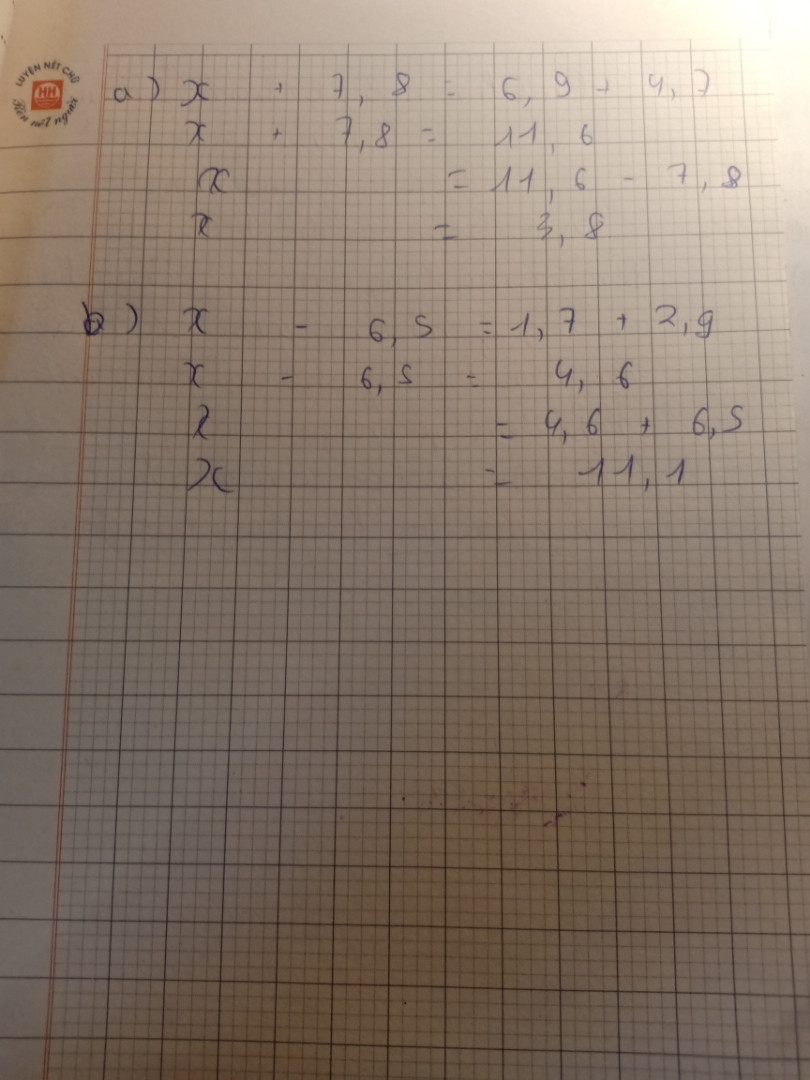 LUYỆN NÉT CHỮ
HH
Rèn nết người
a) x + 7,8 = 6,9 + 4,7
x + 7,8 = 11,6
x = 11,6 - 7,8
x = 3,8
b) x - 6,5 = 1,7 + 2,9
x - 6,5 = 4,6
x = 4,6 + 6,5
x = 11,1